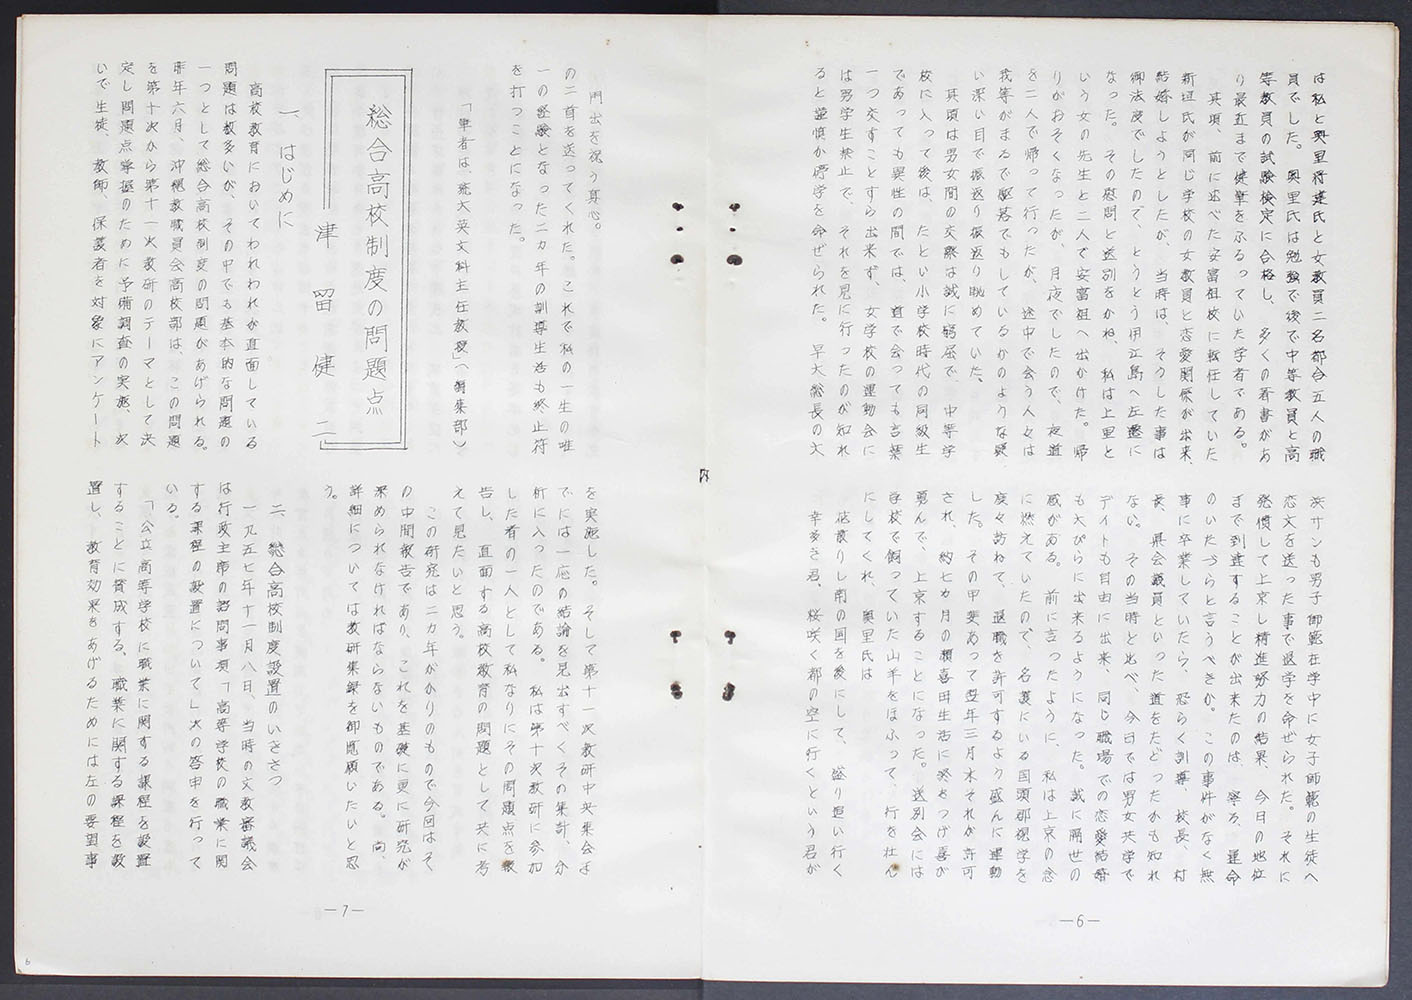 は私と奥里将建氏と女教員二名都合五人の職
員でした。奥里氏は勉強で後で中等教員と高
等教員の試験検定に合格し、多くの著書があ
り最近まで健筆をふるっていた学者である。
其頃、前に述べた安富祖校に転任していた
新垣氏が同じ学校の女教員と恋愛関係が出来、
結婚しようとしたが、当時は、そうした事は
御法度でしたので、とうとう伊江島へ左遷に
なった。その慰問と送別をかね、私は上里と
いう女の先生と二人で安富祖へ出かけた。帰
りがおそくなったが、月夜でしたので、夜道
を二人で帰って行ったが、途中で会う人々は
我等がまるで駆落でもしているかのような疑
い深い目で振返り振返り眺めていた。
其頃は男女間の交際は誠に窮屈で、中等学
校に入って後は、たとい小学校時代の同級生
であっても異性の間では、道で会っても言葉
一つ交すことすら出来ず、女学校の運動会に
は男学生禁止で、それを見に行ったのが知れ
ると謹慎か停学を命ぜられた。早大総長の大
浜サンも男子師範在学中に女子師範の生徒へ
恋文を送った事で退学を命ぜられた。それに
発憤して上京し精進努力の結果、今日の地位
まで到達することが出来たのは、寧ろ、運命
のいたづらと言うべきか。この事件がなく無
事に卒業していたら、恐らく訓導、校長、村
長、県会議員といった道をたどったかも知れ
ない。その当時と比べ、今日では男女共学で
デイトも自由に出来、同じ職場での恋愛結婚
も大ぴらに出来るようになった。誠に隔世の
感がある。前に言ったように、私は上京の念
に燃えていたので、名護にいる国頭郡視学を
度々訪ねて、退職を許可するよう盛んに運動
した。その甲斐あって翌年三月末それが許可
され、約七ヵ月の瀬喜田生活に終をつげ喜び
勇んで、上京することになった。送別会には
学校で飼っていた山羊をほふって、行を壮ん
にしてくれ、奥里氏は
花散りし南の国を後にして、盛り追い行く
幸多き君、桜咲く都の空に行くという君が
—6—
門出を祝う真心。
の二首を送ってくれた。これで私の一生の唯
一の経験となった二カ年の訓導生活も終止符
を打つことになった。
「筆者は、琉大英文科主任教授」(編集部)
総合高校制度の問題点
津留健二
一、はじめに
高校教育においてわれわれが直面している
問題は数多いが、その中でも基本的な問題の
一つとして総合高校制度の問題があげられる。
昨年六月、沖縄教職員会高校部は、この問題
を第十次から第十一次教研のテーマとして決
定し問題点掌握のために予備調査の実施、次
いで生徒、教師、保護者を対象にアンケート
を実施した。そして第十一次教研中央集会ま
でには一応の結論を見出すべくその集計、分
析に入ったのである。私は第十次教研に参加
した者の一人として私なりにその問題点を報
告し、直面する高校教育の問題として共に考
えて見たいと思う。
この研究は二カ年がかりのもので今回はそ
の中間報告であり、これを基礎に更に研究が
深められなければならないものである。尚、
詳細については教研集録を御照願いたいと思
う。
二、総合高校制度設置のいきさつ
一九五七年十一月八日、当時の文教審議会
は行政主席の諮問事項「高等学校の職業に関
する課程の設置について」次の答申を行って
いる。
「公立高等学校に職業に関する課程を設置
することに賛成する、職業に関する課程を設
置し、教育効果をあげるためには左の要望事
—7—
6